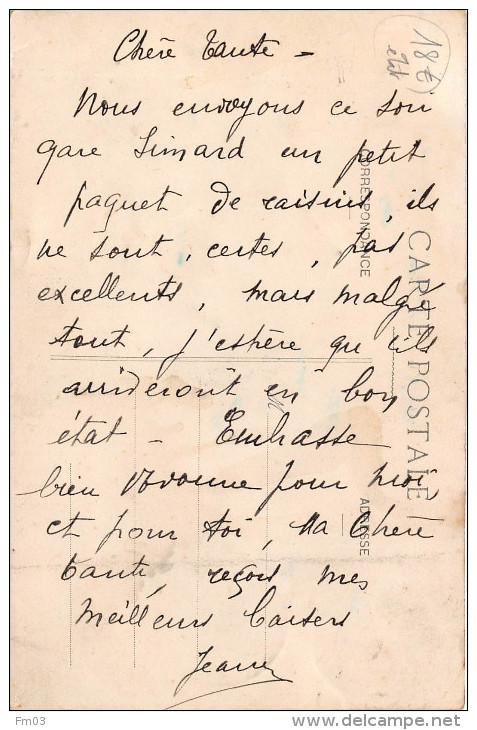 Chère Tante –
Nous envoyons ce soir
gare Simard un petit
paquet de raisins, ils
ne sont, certes, pas
excellents, mais malgré
tout, j'espère qu'ils
arriveront en bon
état – Embrasse
bien Yvonne pour moi
et pour toi, Ma Chère
tante, reçois mes
meilleurs baisers
Jeanne
CARTE POSTALE
CORRESPONDANCE
ADRESSE
18t
Fm03
delcampe.net